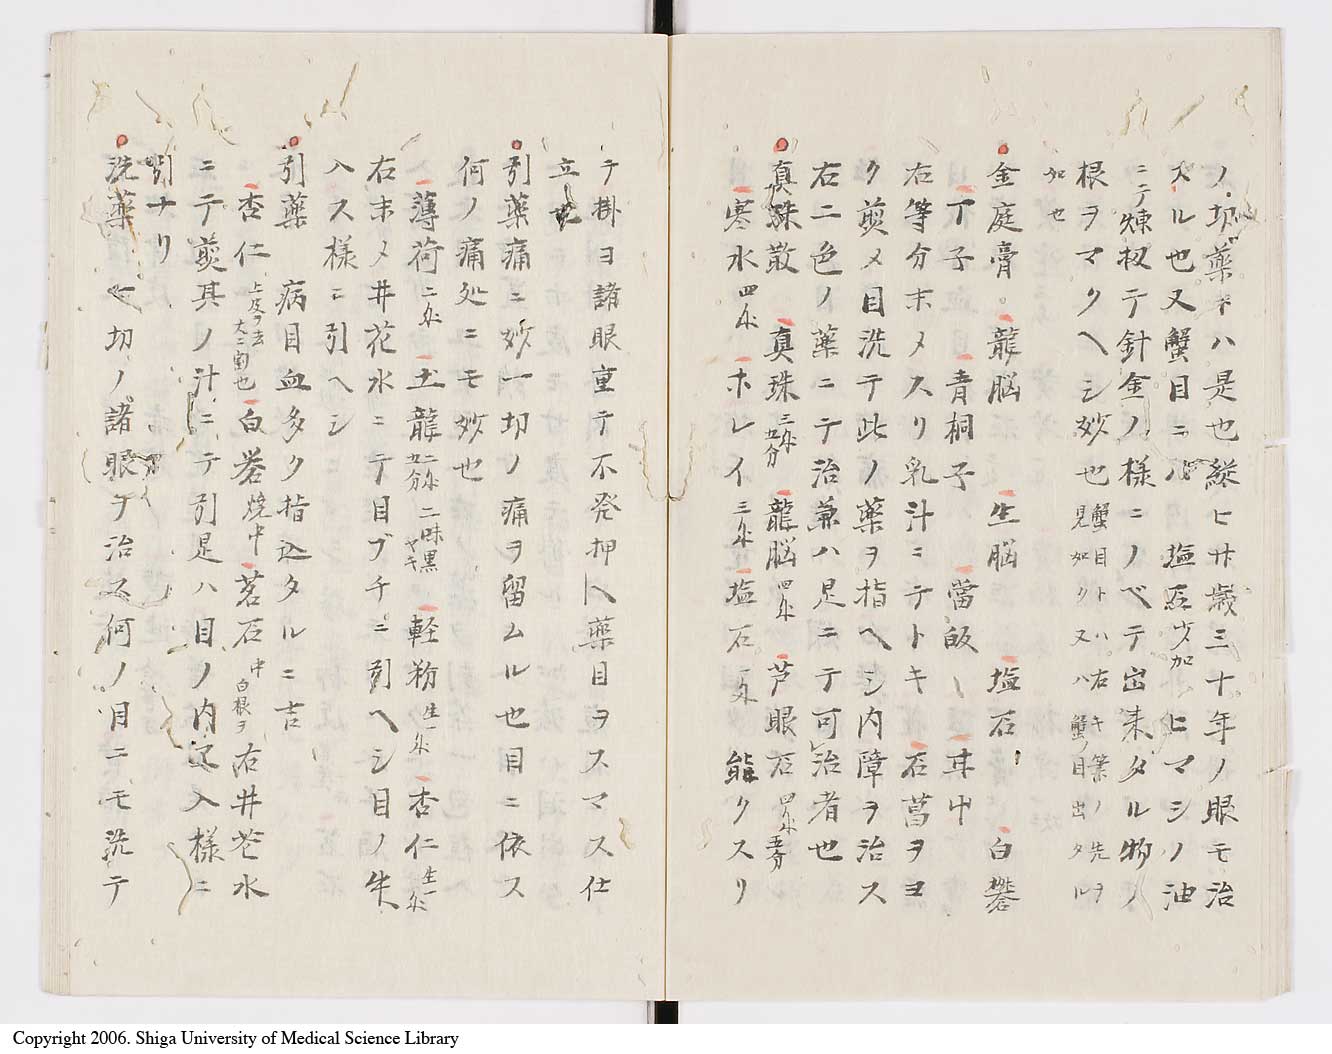 ノ切薬ホハ是也縦ヒ廾歳三十年ノ眼モ治
スル也又蟹目ニハ塩石少加ヒマシノ油
ニテ煉扨テ針金ノ様ニノベテ出来タル物ノ
根ヲマクヘシ妙也蟹目トハ右キ筆ノ先ヲ見如ク又ハ蟹ノ目出タル
如セ
金庭膏 龍脳 生脳 塩石 白礬
丁子 青桐子 當皈 耳中
右等分末メスリ乳汁ニテトキ石菖ヲヨ
ク煎メ目洗テ此ノ薬ヲ指ヘシ内障ヲ治ス
右二色ノ薬ニテ治兼ハ足ニテ可治者也
真珠散 真珠三分五分 龍脳四分 芦眼石四分五分
寒水四分 ホレイ三分 塩石一分 能クスリ
テ掛ヨ諸眼重テ不発押ヘ薬目ヲスマス仕
立也
引薬痛ニ妙一切ノ痛ヲ留ムル也目ニ依ス
何ノ痛処ニモ妙也
薄荷二分 土龍二分五分 二味黒ヤキ 軽粉生一分 杏仁生一分
右末メ井花水ニテ目ブチニ引ヘシ目ノ失
ハス様ニ引ヘシ
引薬 病目血多ク指込タルニ吉
杏仁上皮ヲ去大二宛也 白礬焼中 茗石中白根ヲ 右井花水
ニテ煎其ノ汁ニテ引是ハ目ノ内迄入様ニ
引ナリ
洗薬 一切ノ諸眼ヲ治ス何ノ目ニモ洗テ
Copyright 2006. Shiga University of Medical Science Library